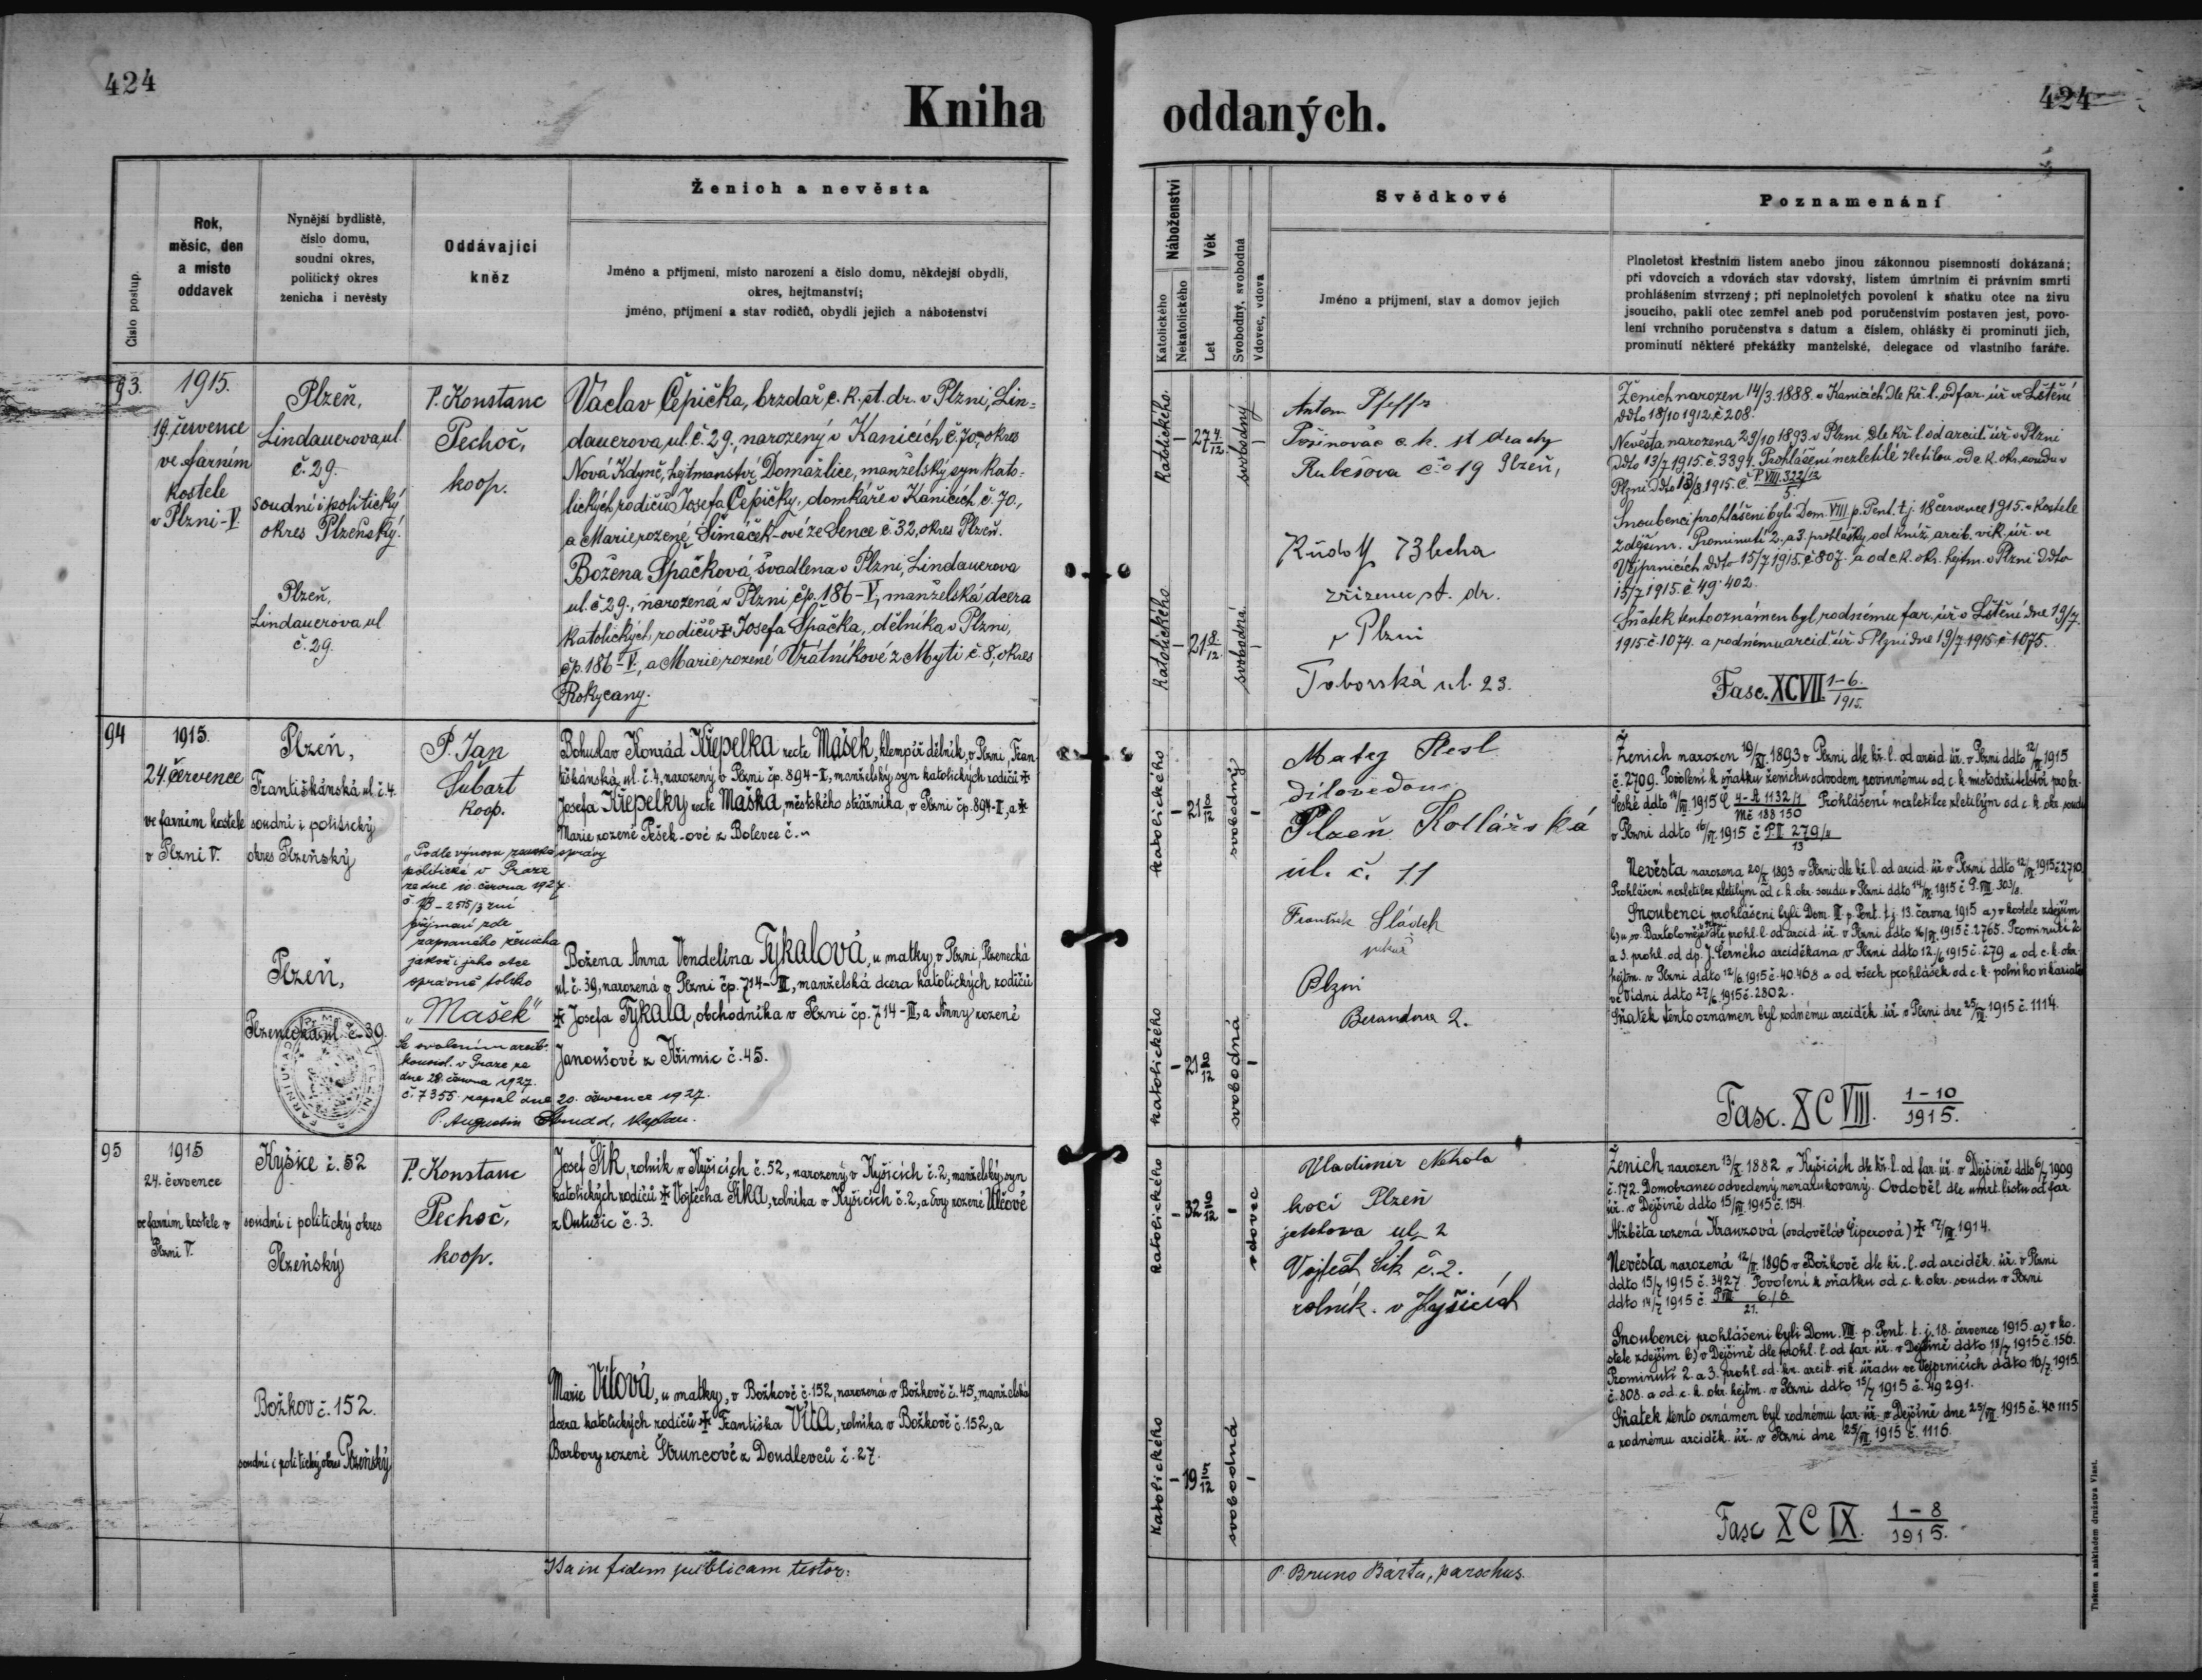 424
Kniha
Číslo postup.
Rok,
měsíc, den
a místo
oddavek
Nynější bydliště,
číslo domu,
soudní okres,
politický okres
ženicha i nevěsty
Oddávající
kněz
Ženich a nevěsta
Jméno a příjmení, místo narození a číslo domu, někdejší obydlí,
okres, hejtmanství;
jméno, příjmení a stav rodičů, obydlí jejich a náboženství
93.
1915.
19. července
ve farním
kostele
v Plzni-V.
Plzeň,
Lindauerova ul.
č. 29.
soudní i politický
okres Plzeňský.
Plzeň,
Lindauerova ul
č. 29.
P. Konstanc
Pechoč,
koop.
Václav Čepička, brzdař c. k. st. dr. v Plzni, Lin=
dauerova ul. č. 29., narozený v Kanicích č. 70, okres
Nová Kdyně, hejtmanství Domažlice, manželský syn kato-
lických rodičů Josefa Čepičky, domkáře v Kanicích č. 70,
a Marie rozené Šimáček-ové ze Sence č. 32, okres Plzeň.
Božena Špačková, švadlena v Plzni, Lindauerova
ul. č 29., narozená v Plzni čp. 186-V, manželská dcera
katolických rodičů ✠ Josefa Špačka, dělníka v Plzni,
čp. 186-V., a Marie rozené Vrátníkové z Mýti č. 8, okres
Rokycany.
94
1915.
24. července
ve farním kostele
v Plzni V.
Plzeň,
Františkánská ul. č. 4.
soudní i politický
okres Plzeňský
Plzeň,
Plzenecká ul. č. 39.
P. Jan
Šubart
koop.
"Podle výnosu zemské správy
politické v Praze
ze dne 10. června 1927
č. 1/B-2515/3 zní
příjmení zde
zapsaného ženicha
jakož i jeho otce
správně toliko
"Mašek"
Se svolením arcib.
konsist. v Praze ze
dne 28. června 1927.
č. 7355. zapsal dne 20. července 1927.
P. Augustin
Bohuslav Konrád Křepelka recte Mašek, klempíř. dělník, v Plzni, Fran
tiškánská ul. č. 4, narozený v Plzni čp. 894-I, manželský syn katolických rodičů ✠
Josefa Křepelky recte Maška, městského strážníka, v Plzni čp. 894-I, a ✠
Marie rozené Pešek-ové z Bolevce č.
Božena Anna Vendelína Tykalová, u matky, v Plzni, Plzenecká
ul. č. 39, narozená v Plzni čp. 714-III, manželská dcera katolických rodičů
✠ Josefa Tykala, obchodníka v Plzni čp. 714-III, a Anny rozené
Janoušové z Křimic č. 45.
95
1915
24. července
ve farním kostele v
Plzni V.
Kyšice č. 52
soudní i politický okres
Plzeňský
Božkov č. 152.
soudní i politický okres Plzeňský
P. Konstanc
Pechoč,
koop.
Josef Šik, rolník v Kyšicích č. 52, narozený v Kyšicích č. 2, manželský syn
katolických rodičů ✠ Vojtěcha Šika, rolníka v Kyšicích č. 2, a Evy rozené Ulčové
z Outušic č. 3.
Marie Vítová, u matky, v Božkově č. 152, narozená v Božkově č. 45, manželská
dcera katolických rodičů ✠ Františka Víta, rolníka v Božkově č. 152, a
Barbory rozené Štruncové z Doudlevců č. 27.
Ita in fidem publicam testor:
oddaných.
424
Náboženství
Katolického
Nekatolického
Věk
Let
Svobodný, svobodná
Vdovec, vdova
Svědkové
Jméno a příjmení, stav a domov jejich
Poznamenání
Plnoletost křestním listem anebo jinou zákonnou písemností dokázaná;
při vdovcích a vdovách stav vdovský, listem úmrtním či právním smrti
prohlášením stvrzený; při neplnoletých povolení k sňatku otce na živu
jsoucího, pakli otec zemřel aneb pod poručenstvím postaven jest, povo-
lení vrchního poručenstva s datum a číslem, ohlášky či prominutí jich,
prominutí některé překážky manželské, delegace od vlastního faráře.
katolického - 27 4/12 svobodný -
katolického - 21 8/12 svobodná -
Anton
c. k. st dráhy
č. 19 Plzeň,
Rudolf
zřízenec st. dr.
v Plzni
Táborská ul. 23.
Ženich narozen 14/3. 1888. v Kanicích dle kř. l. od far. úř. ve Štění
ddto 18/10 1912. č 208.
Nevěsta narozena 29/10 1893. v Plzni, dle kř. l. od arcid. úř. v Plzni
ddto 13/7 1915. č. 3394. Prohlášení nezletilé zletilou od c. k. okr. soudu v
Plzni ddto 1915. č. P. VIII. 322/12
5.
Snoubenci prohlášeni byli Dom. VIII p. Pent. t. j. 18 července 1915. v kostele
zdejším. Prominutí 2. a 3. prohlášky od kníž. arcib. vik. úř. ve
Vejprnicích ddto 15/7 1915. č 807. a od c. k. okr. hejtm. v Plzni ddto
15/7 1915. č 49.402.
Sňatek tento oznámen byl rodnému far. úř. v Štění dne 19/7.
1915. č. 1074. a rodnému arcid. úř. v Plzni dne 19/7. 1915. č 1075.
Fasc. XCVII. 1-6./1915.
katolického - 21 8/12 svobodný -
katolického - 21 9/12 svobodná -
Matěj
dílovedoucí
Plzeň Kollárská
ul. č. 11
František Sládek
Plzni
2.
Ženich narozen 19/X. 1893 v Plzni dle kř. l. od arcid. úř. v Plzni ddto 12/VI 1915
č. 2709. Povolení k sňatku ženichu odvodem povinnému od c. k. místodržitelství pro kr.
české ddto 14/VI. 1915 č 4-A 1132/1
Mč 188150 Prohlášení nezletilce zletilým od c. k. okr. soudu
v Plzni ddto 16/VI. 1915 č P. II 279/11
13
Nevěsta narozena 20/X 1893 v Plzni dle kř. l. od arcid. úř. v Plzni ddto 12/VI. 1915 č 2710.
Prohlášení nezletilce zletilým od c. k. okr. soudu v Plzni ddto 14/VI. 1915 č P. VIII. 303/8.
Snoubenci prohlášeni byli Dom. III p. Pent. t. j. 13. června 1915 a) v kostele zdejším
b) u sv. Bartoloměje dle prohl. l. od arcid. úř. v Plzni ddto 16/VI. 1915 č. 2765. Prominutí 2.
a 3. prohl. od dp. J. Černého arciděkana v Plzni ddto 12./6 1915 č. 279 a od c. k. okr.
hejtm. v Plzni ddto 12/6. 1915 č. 40.468 a od všech prohlášek od c. k. polního vikariátu
ve Vídni ddto 27/6. 1915 č. 2802.
Sňatek tento oznámen byl rodnému arciděk. úř. v Plzni dne 25/VII. 1915 č. 1114.
Fasc. XC VIII. 1-10/1915.
katolického - 32 9/12 - vdovec
katolického - 19 5/12 svobodná -
Vladimír Nekola
kočí Plzeň
ul. 2
Vojtěch Šik č. 2.
rolník v Kyšicích
Ženich narozen 13/X. 1882 v Kyšicích dle kř. l. od far. úř. v Dejšině ddto 6/7 1909
č. 172. Domobranec odvedený nenarukovaný. Ovdověl dle úmrt. listu od far.
úř. v Dejšině ddto 15/VII. 1915 č. 154.
Alžběta rozená Kranzová (ovdovělá Čiperová) ✠ 17/VII. 1914.
Nevěsta narozená 12/II. 1896 v Božkově dle kř. l. od arciděk. úř. v Plzni
ddto 15/7 1915 č. 3427. Povolení k sňatku od c. k. okr. soudu v Plzni
ddto 14/7 1915 č. P VIII 6./6
21.
Snoubenci prohlášeni byli Dom. VIII. p. Pent. t. j. 18. července 1915 a) v ko-
stele zdejším b) v Dejšině dle prohl. l. od far. úř. v Dejšině ddto 18/7 1915 č. 156.
Prominutí 2. a 3. prohl. od kn. arcib. vik. úřadu ve Vejprnicích ddto 16/7. 1915.
č. 808. a od c. k. okr. hejtm. v Plzni ddto 15/7 1915 č. 49291.
Sňatek tento oznámen byl rodnému far. úř. v Dejšině dne 25/VII. 1915 č. 1115
a rodnému arciděk. úř. v Plzni dne 25/VII. 1915 č. 1116.
Fasc XC IX. 1-8/1915.
P. Bruno Bárta, parochus.
Tiskem a nákladem družstva Vlast.